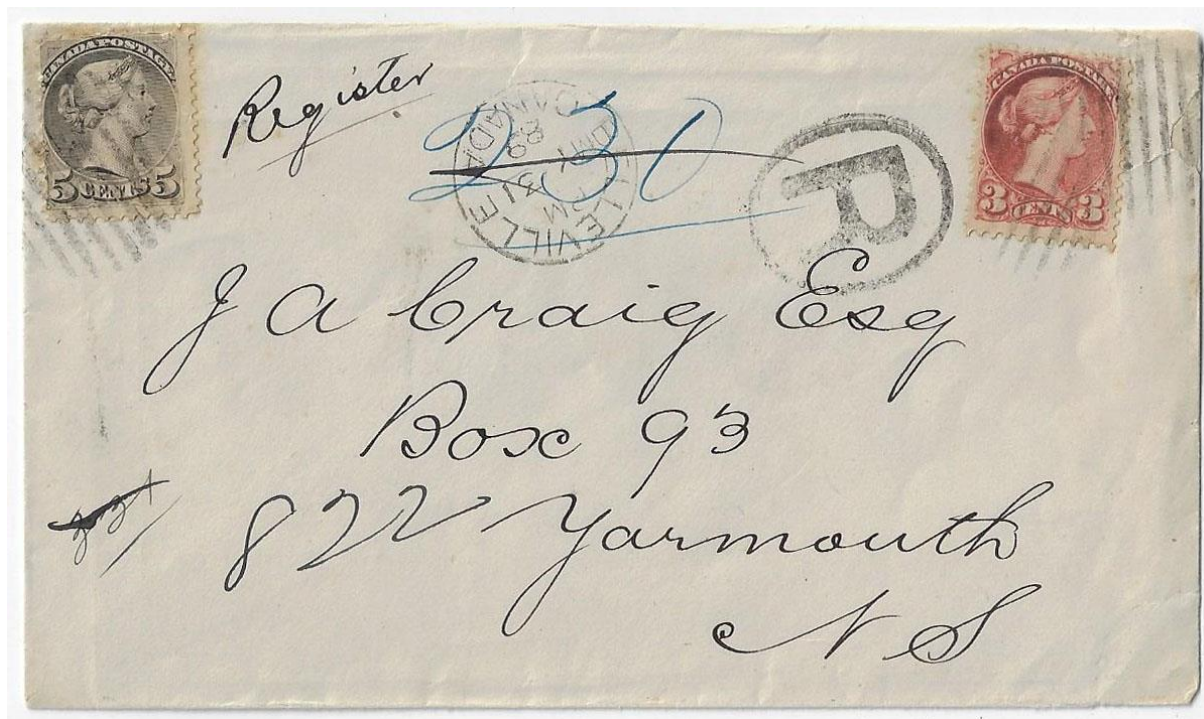 CANADA POSTAGE
5 CENTS 5
Register
230
CANADA
89
31
PM
LEVILLE
R
CANADA POSTAGE
3 CENTS 3
J A Craig Esq
Box 93
822 Yarmouth
N S